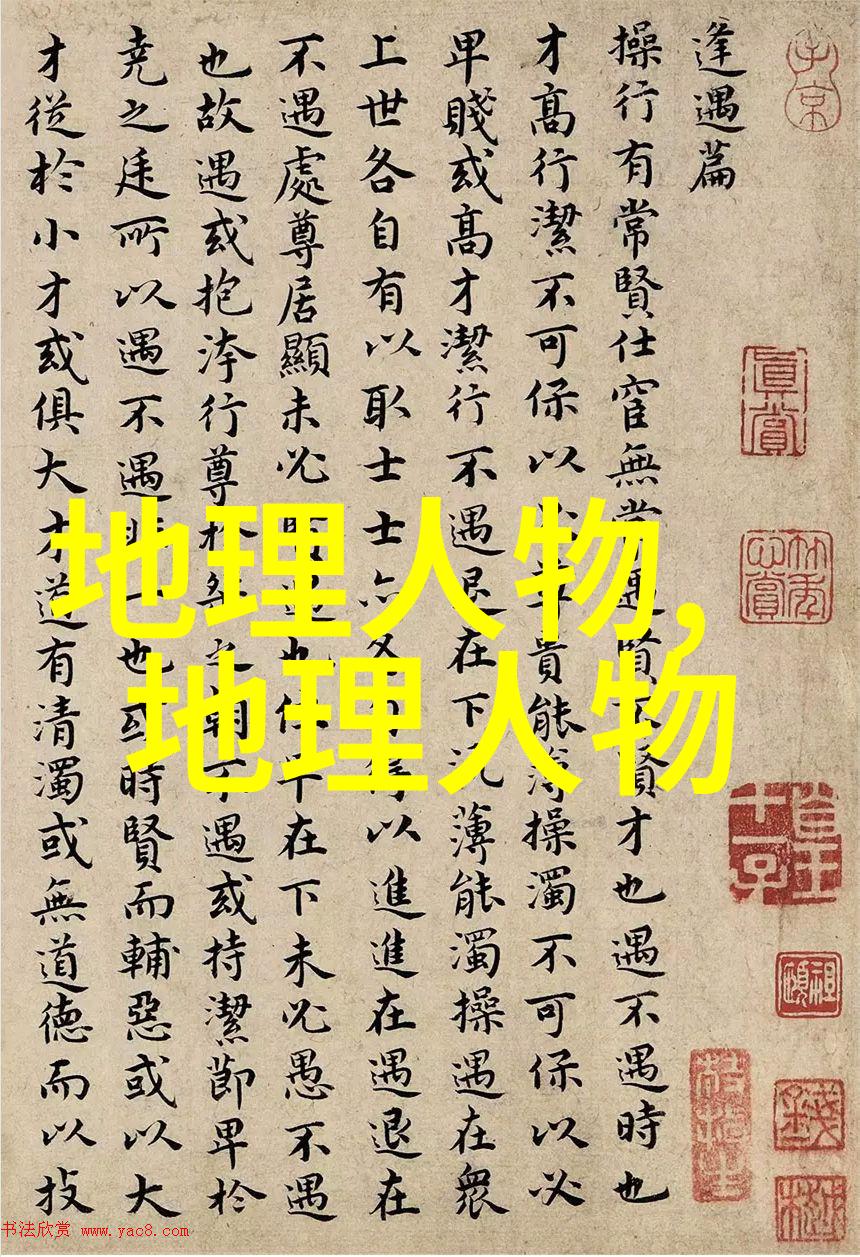 逢遇篇
操行有常賢仕宦無常遇賢不賢才也遇不遇時也
才高行潔不可保以必尊貴能薄操濁不可保以必
卑賤或高才潔行不遇退在下流薄能濁操遇在衆
上世各自有以取士士亦各自得以進進在遇退在
不遇處尊居顯未必賢遇也位卑在下未必愚不遇
也故遇或抱洿行尊於桀之朝不遇或持潔節卑於
堯之廷所以遇不遇非一也或時賢而輔惡或以大
才從於小才或俱大才道有清濁或無道德而以技
地理人物,
地理人物
子京
真賞
書法欣赏 www.yac8.com